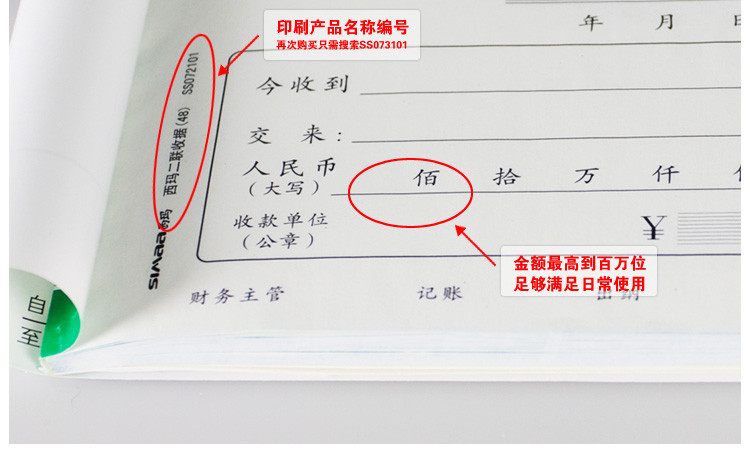 印刷产品名称编号
再次购买只需搜索SS073101
年 月 日
今收到
交 来：
人民币
（大写）
佰 拾 万 仟
收款单位
（公章）
¥
金额最高到百万位
足够满足日常使用
财务主管 记账 出纳
simaa西玛 西玛二联收据(48) SS072101
自
至